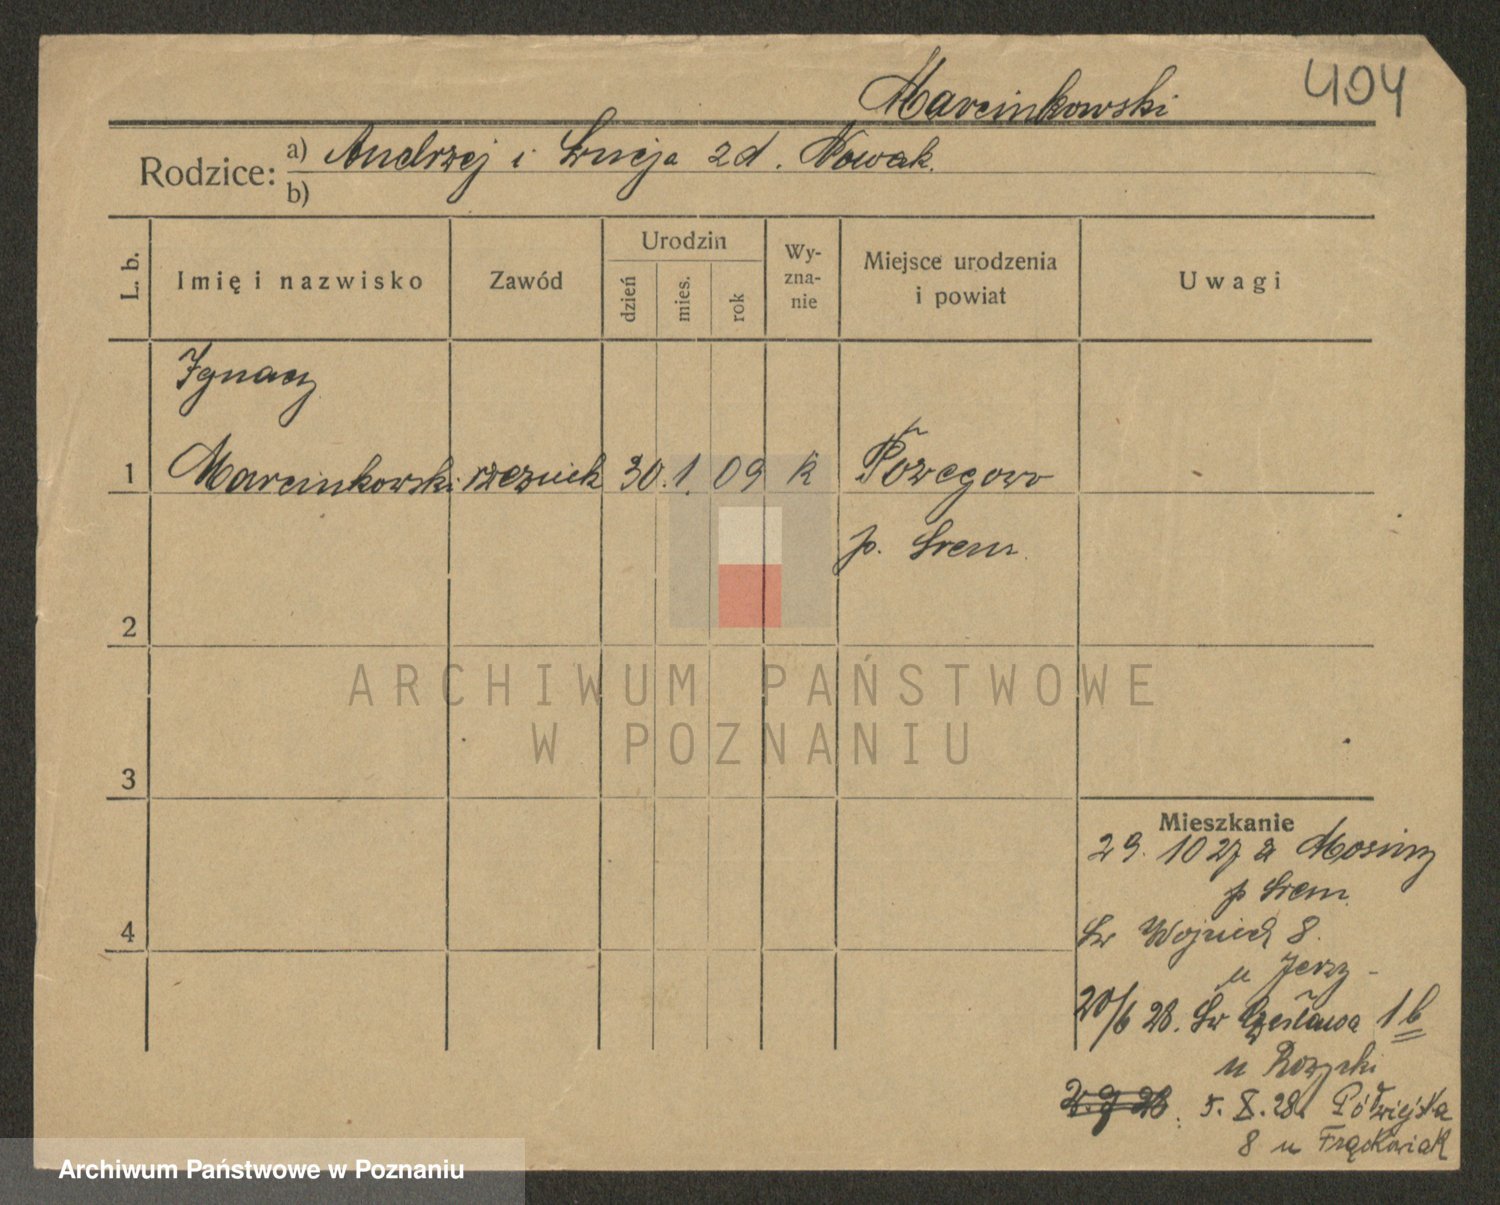 Marcinkowski
404
Rodzice: a) Andrzej i Łucja zd. Nowak.
b)
L. b.
Imię i nazwisko
Zawód
Urodzin
dzień
mies.
rok
Wy-
zna-
nie
Miejsce urodzenia
i powiat
Uwagi
Ignacy
1 Marcinkowski rzeznik 30. 1. 09 k Pożegowo
p. Śrem
2
3
4
ARCHIWUM PAŃSTWOWE
W POZNANIU
Mieszkanie
29. 10 27 z Mosiny
p Śrem
Św Wojciech 8.
u Jerzy -
20/6 28. Św Czesława 1 b
u Rozycki
5. X. 28. Półwiejska
8 u Frąckowiak
Archiwum Państwowe w Poznaniu